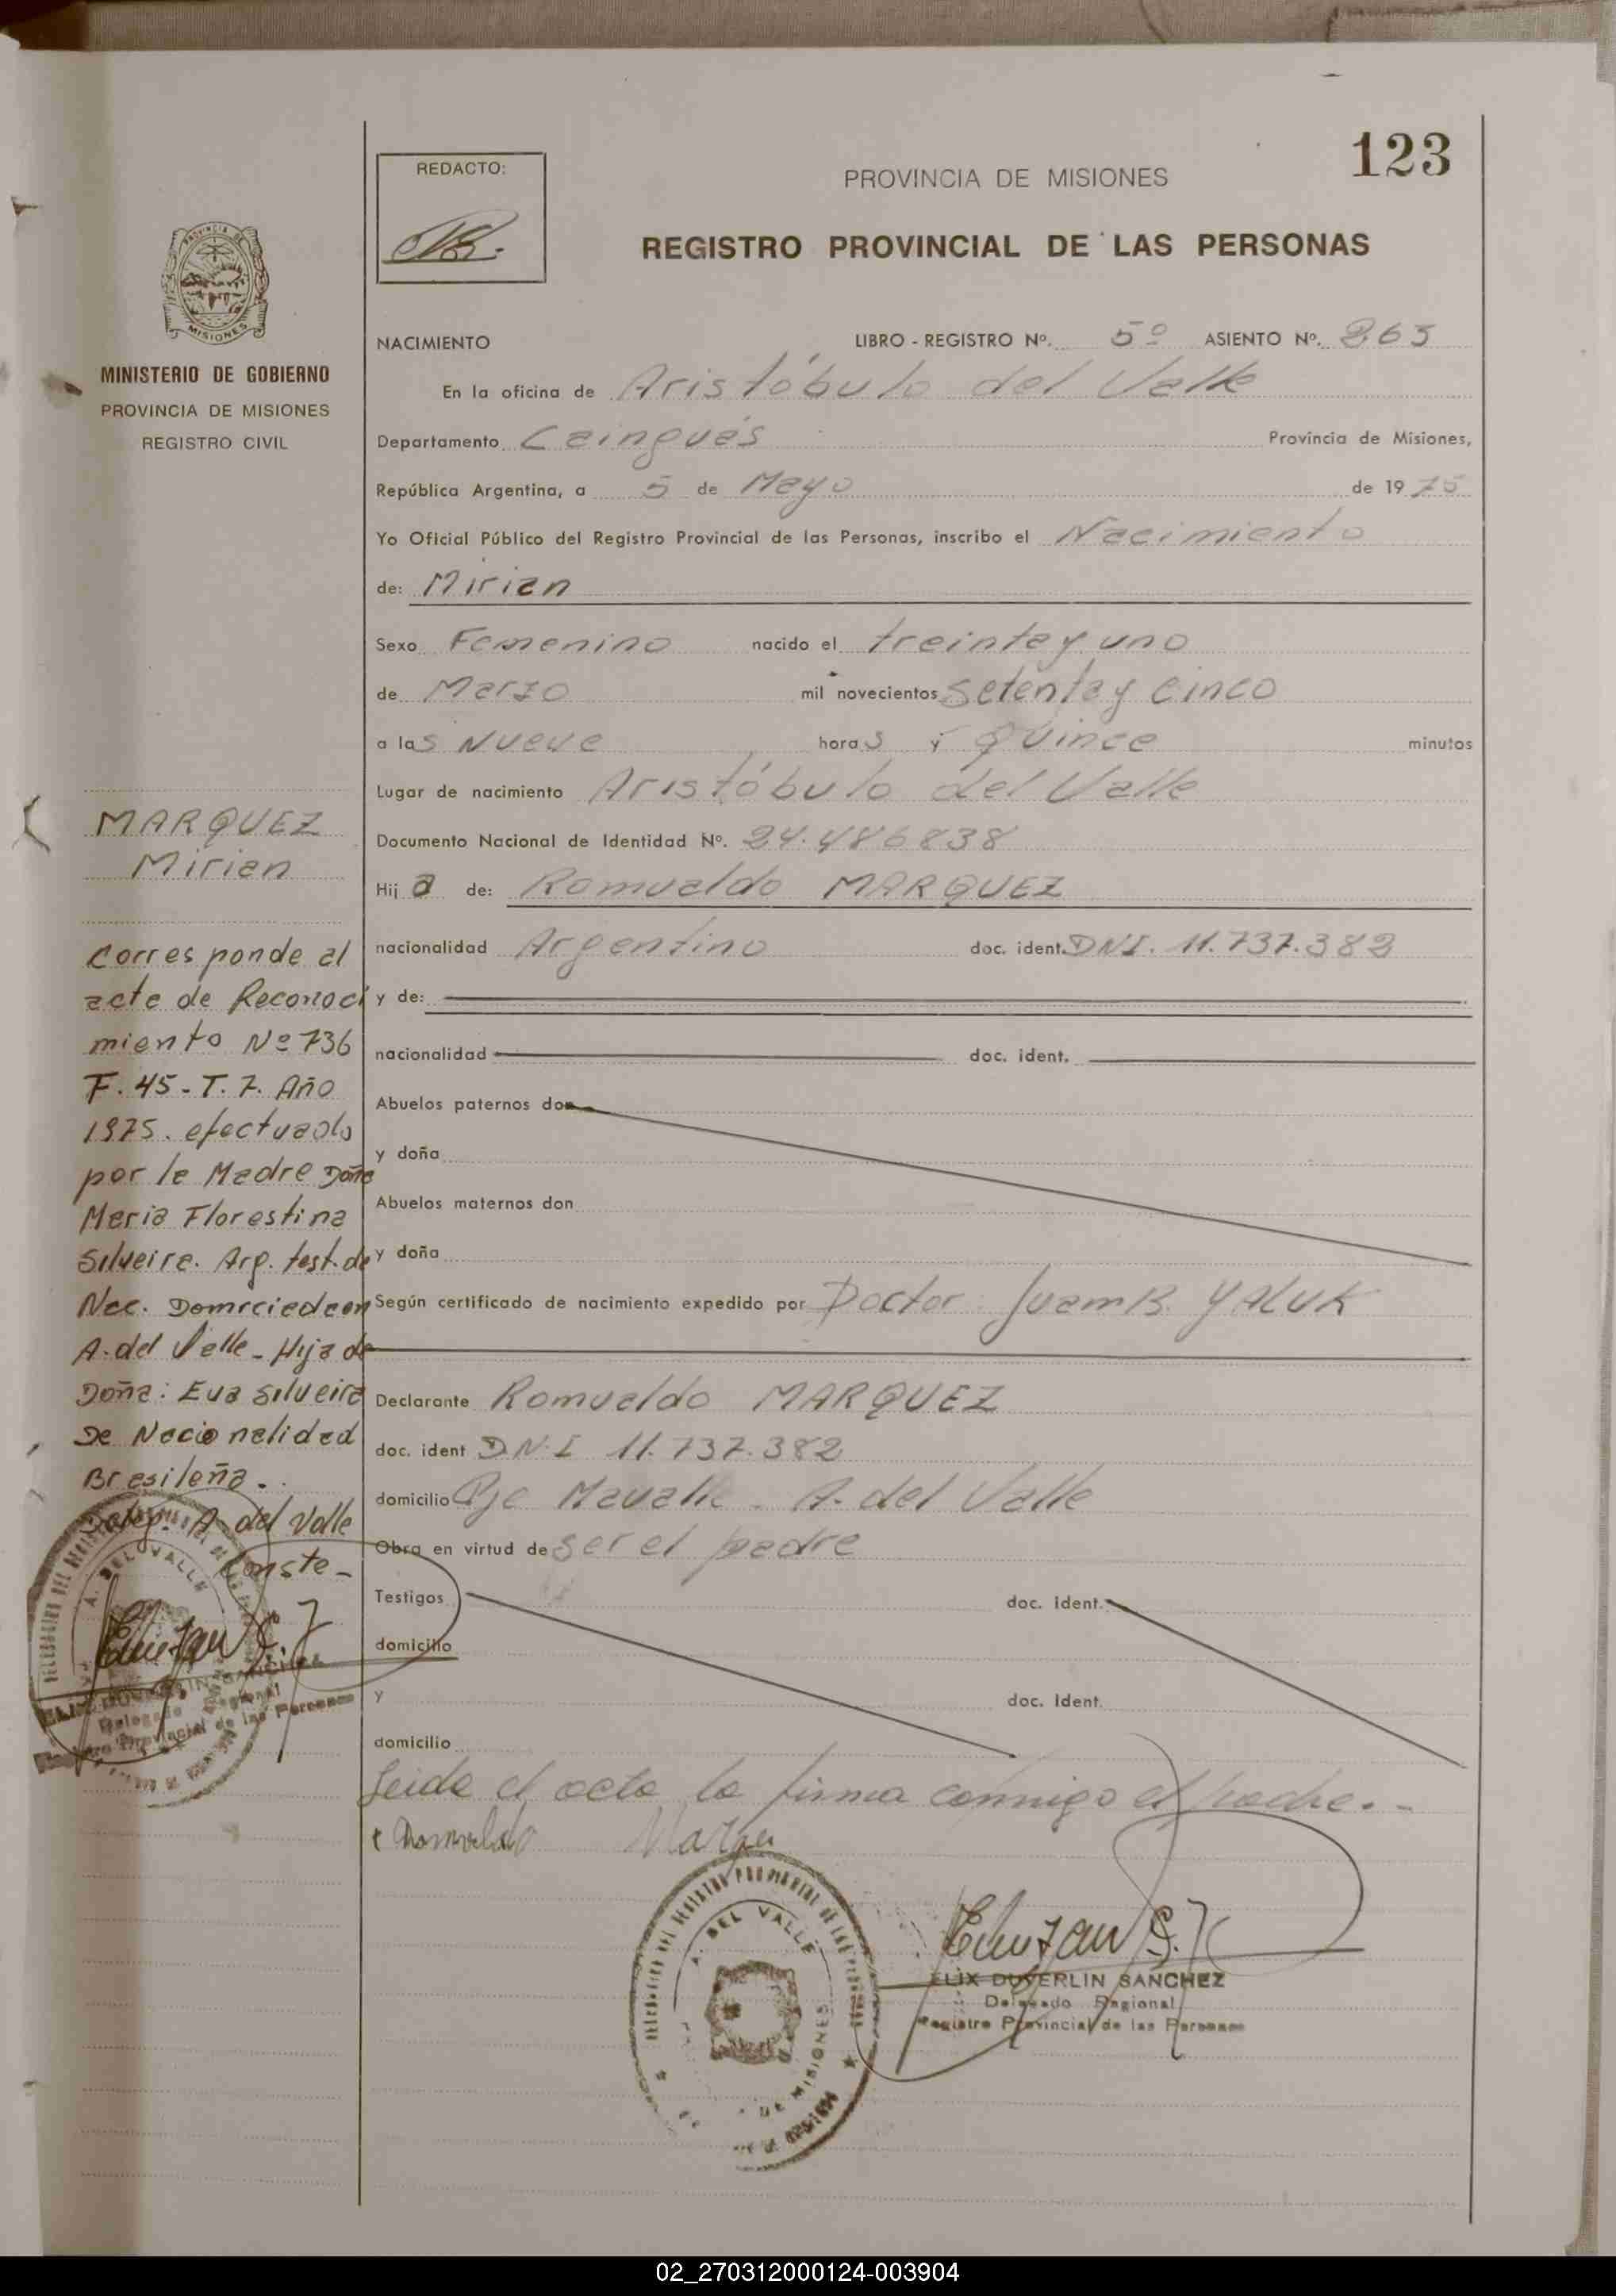 123
REDACTO:
PROVINCIA DE MISIONES
REGISTRO PROVINCIAL DE LAS PERSONAS
MISIONES
MINISTERIO DE GOBIERNO
PROVINCIA DE MISIONES
REGISTRO CIVIL
NACIMIENTO LIBRO - REGISTRO Nº. 5º ASIENTO Nº. 863
En la oficina de Aristóbulo del Valle
Departamento Cainguás Provincia de Misiones,
República Argentina, a 5 de Mayo de 1975
Yo Oficial Público del Registro Provincial de las Personas, inscribo el Nacimiento
de: Mirian
Sexo Femenino nacido el treinta y uno
de Marzo mil novecientos setenta y cinco
a las Nueve horas y Quince minutos
Lugar de nacimiento Aristóbulo del Valle
Documento Nacional de Identidad Nº. 24.486838
Hija de: Romualdo MARQUEZ
nacionalidad Argentino doc. ident. DNI. 11.737.382
y de:
nacionalidad doc. ident.
Abuelos paternos don
y doña
Abuelos maternos don
y doña
Según certificado de nacimiento expedido por Doctor Juam B. YALUK
Declarante Romualdo MARQUEZ
doc. ident D.N.I 11.737.382
domicilio Pje Mavalle. A. del Valle
Obra en virtud de ser el padre
Testigos doc. ident.
domicilio
y doc. Ident.
domicilio
Leida el acta la firma conmigo el padre.-
Romualdo Marque
MARQUEZ
Mirian
Corresponde al
acta de Reconoci
miento Nº 736
F. 45 - T. 7. Año
1975. efectuado
por la Madre Doña
Maria Florestina
Silveira. Arg. test. de
Nac. Domiciedaen
A. del Valle - Hija de
Doña: Eva Silveira
De Nacionalidad
Brasileña.
A. del Valle
Conste -
A. DEL VALLE
Delegado Regional
Registro Provincial de las Personas
A. DEL VALLE
DE MISIONES
ELIX DUVERLIN SANCHEZ
Delegado Regional
Registro Provincial de las Personas
02_270312000124-003904